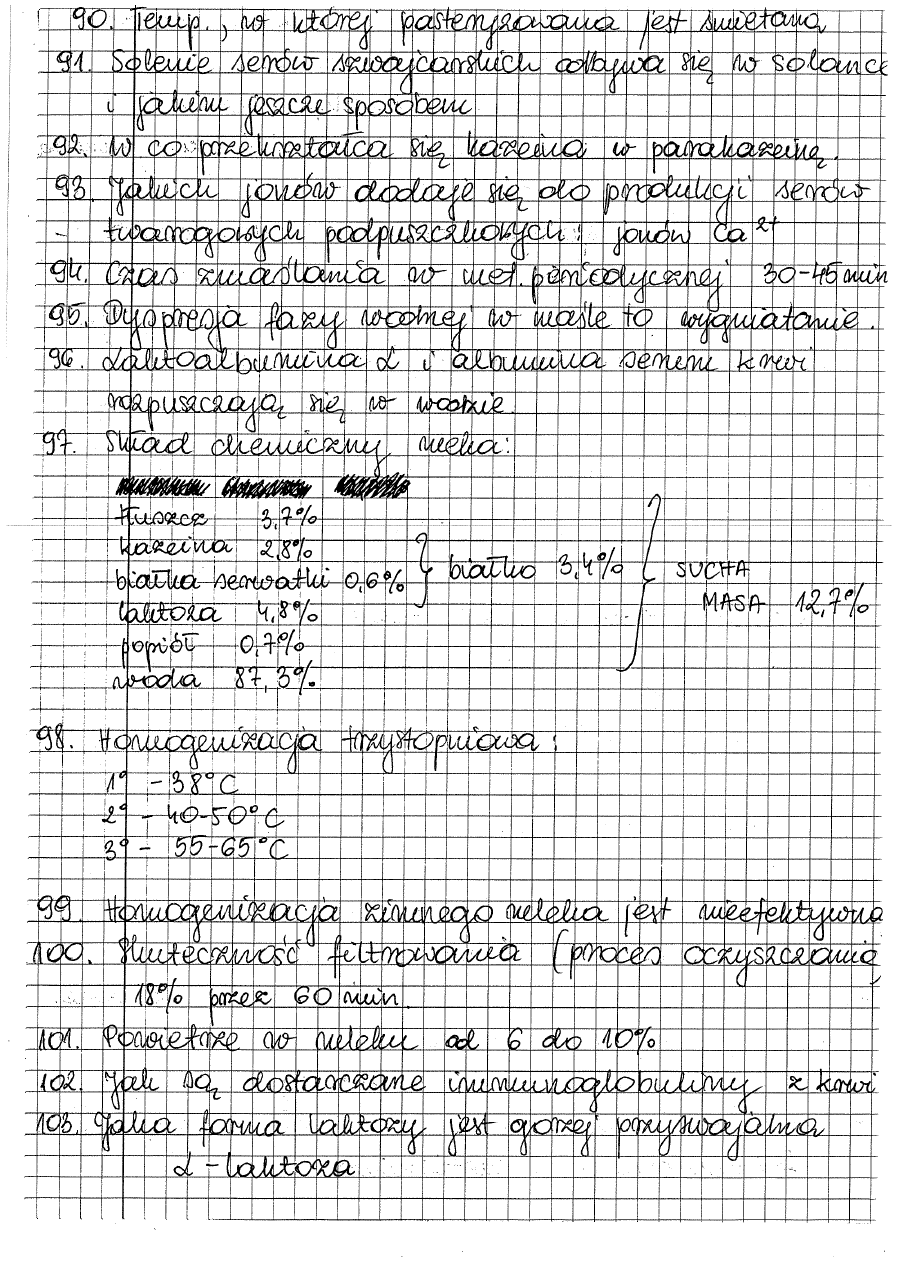 90. Temp., w której pasteryzowana jest śmietana
91. Solenie serów szwajcarskich odbywa się w solance
i jakim jeszcze sposobem
92. W co przekształca się kazeina w parakazeinę.
93. Jakich jonów dodaje się do produkcji serów
- twarogowych podpuszczkowych: jonów Ca²⁺
94. Czas zmaślania w met. periodycznej 30-45 min
95. Dyspresja fazy wodnej w maśle to wygniatanie.
96. Laktoalbumina α i albumina serum krwi
rozpuszczają się w wodzie
97. Skład chemiczny mleka:
tłuszcz 3,7%
kazeina 2,8%
białka serwatki 0,6% } białko 3,4% } SUCHA
laktoza 4,8% MASA 12,7%
popiół 0,7%
woda 87,3%
98. Homogenizacja trzystopniowa:
1° - 38°C
2° - 40-50°C
3° - 55-65°C
99. Homogenizacja zimnego mleka jest nieefektywna
100. Skuteczność filtrowania (proces oczyszczania
18% przez 60 min.
101. Powietrze w mleku od 6 do 10%
102. Jak są dostarczane immunoglobuliny z krwi
103. Jaka forma laktozy jest gorzej przyswajalna
α - laktoza